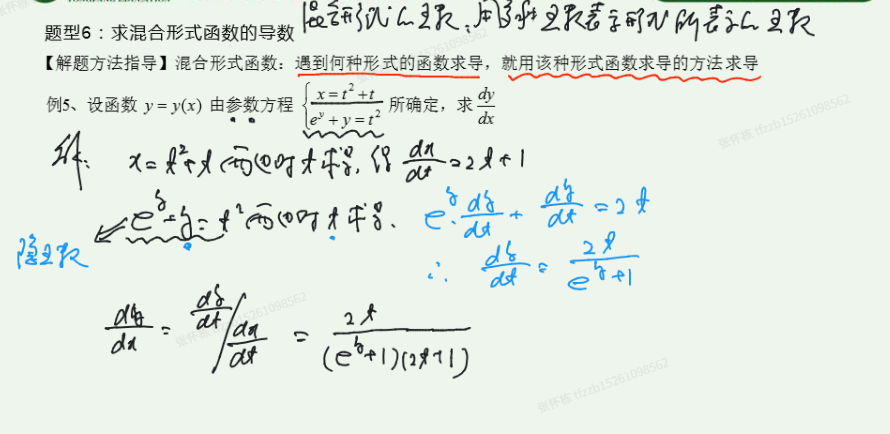 题型6：求混合形式函数的导数 混合形式的函数：用多种函数表示形式所表示的函数
【解题方法指导】混合形式函数：遇到何种形式的函数求导，就用该种形式函数求导的方法求导
例5、设函数 y = y(x) 由参数方程 { x = t² + t, e^y + y = t² 所确定，求 dy/dx
解： x = t² + t 两边对 t 求导，得 dx/dt = 2t + 1
e^y + y = t² 两边对 t 求导、 e^y · dy/dt + dy/dt = 2t
隐函数 ∴ dy/dt = 2t/(e^y + 1)
dy/dx = dy/dt / dx/dt = 2t/((e^y + 1)(2t + 1))
张怀栋 tfzzb15261098562
张怀栋 tfzzb15261098562
张怀栋 tfzzb15261098562